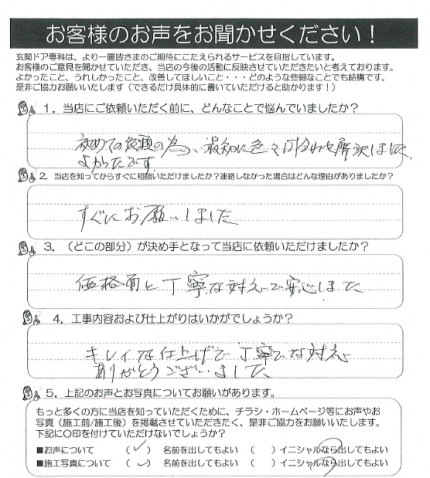 お客様のお声をお聞かせください！
玄関ドア専科は、より一層皆さまのご期待にこたえられるサービスを目指しています。
お客様のご意見を聞かせていただき、当店の今後の活動に反映させていただきたいと考えております。
よかったこと、うれしかったこと、改善してほしいこと・・・どのような些細なことでも結構です。
是非ご協力お願いします（できるだけ具体的に書いていただけると助かります！）
1．当店にご依頼いただく前に、どんなことで悩んでいましたか？
初めての依頼の為、最初に色々
よかったです
2．当店を知ってからすぐに相談いただけましたか？連絡しなかった場合はどんな理由がありましたか？
すぐにお願いしました
3．（どこの部分）が決め手となって当店に依頼いただけましたか？
価格面と丁寧な対応で安心しました
4．工事内容および仕上がりはいかがでしょうか？
キレイな仕上げで丁寧な対応
ありがとうございました
5．上記のお声とお写真についてお願いがあります。
もっと多くの方に当店を知っていただくために、チラシ・ホームページ等にお声やお
写真（施工前/施工後）を掲載させていただきたく、是非ご協力をお願いいたします。
下記に〇印を付けていただけないでしょうか？
■お声について （✓） 名前を出してもよい （ ）イニシャルなら出してもよい
■施工写真について（✓） 名前を出してもよい （ ）イニシャルなら出してもよい